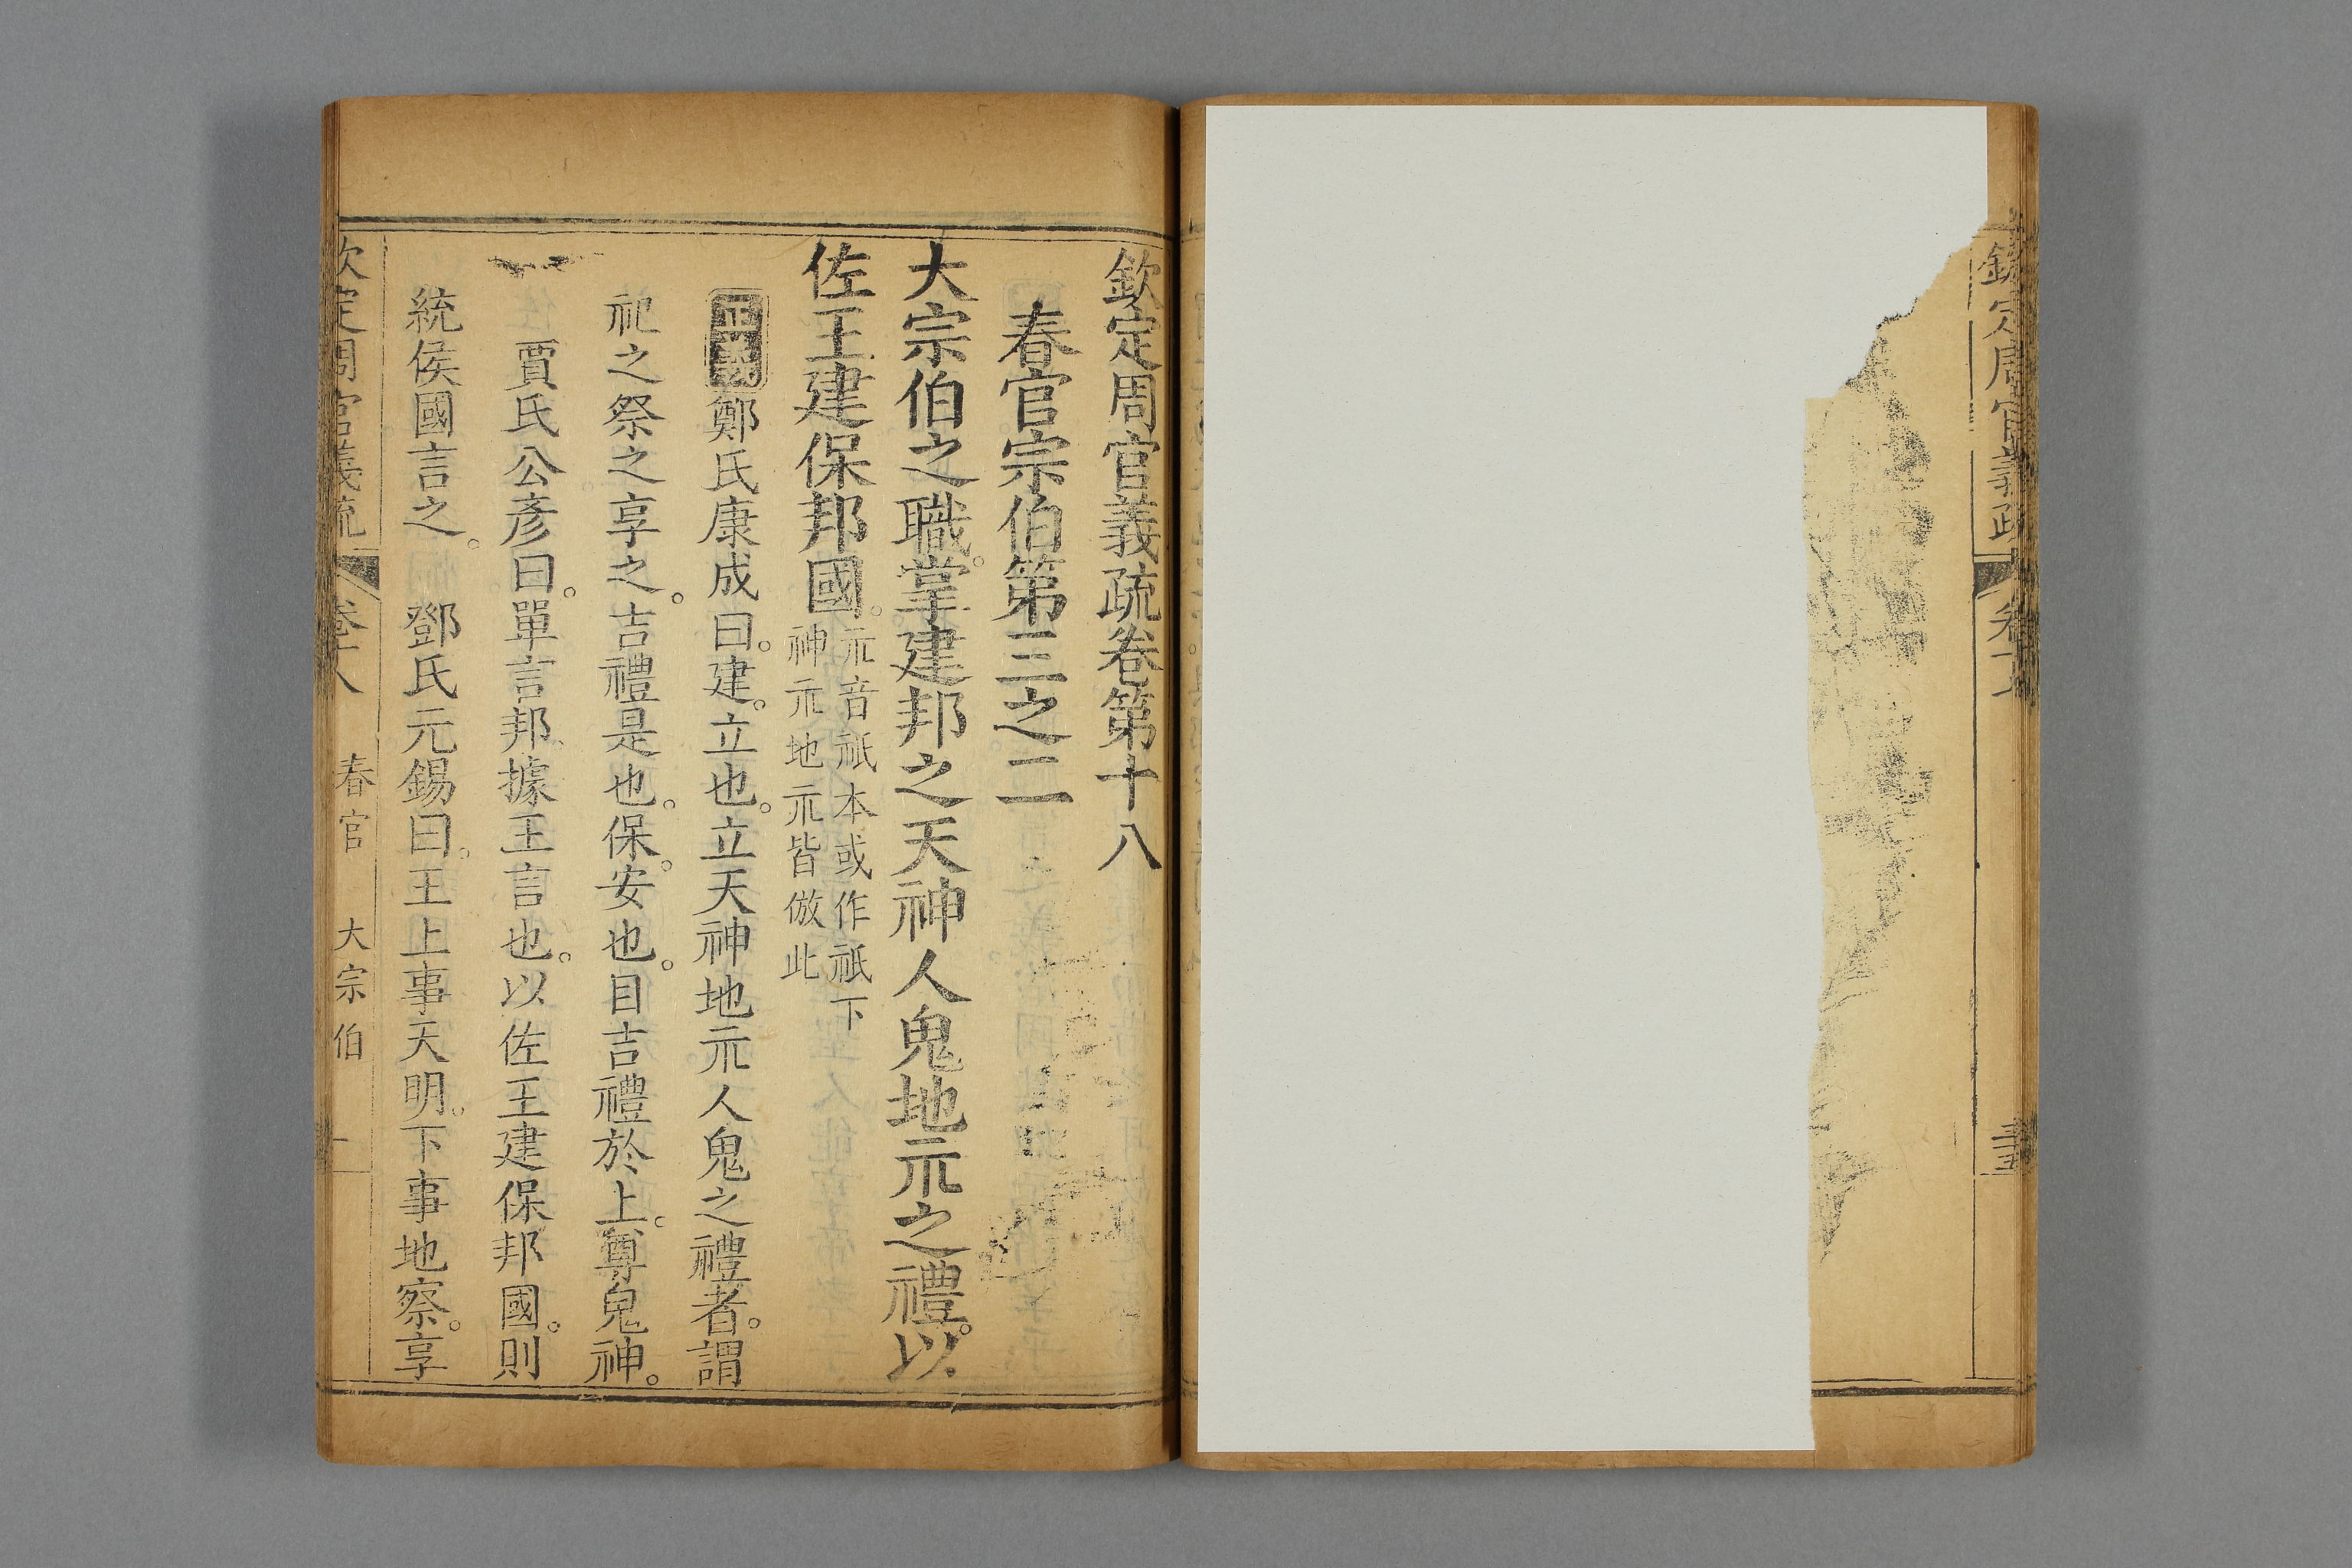 欽定周官義疏
欽定周官義疏卷第十八
春官宗伯第三之二
大宗伯之職。掌建邦之天神人鬼地示之禮。以
佐王建保邦國。
示音祇本或作祇下
神示地示皆倣此
正義鄭氏康成曰。建。立也。立天神地示人鬼之禮者。謂
祀之祭之享之。吉禮是也。保。安也。目吉禮於上。尊鬼神。
賈氏公彥曰。單言邦。據王言也。以佐王建保邦國。則
統侯國言之。 鄧氏元錫曰。王上事天明。下事地察。享
欽定周官義疏 卷十八 春官 大宗伯